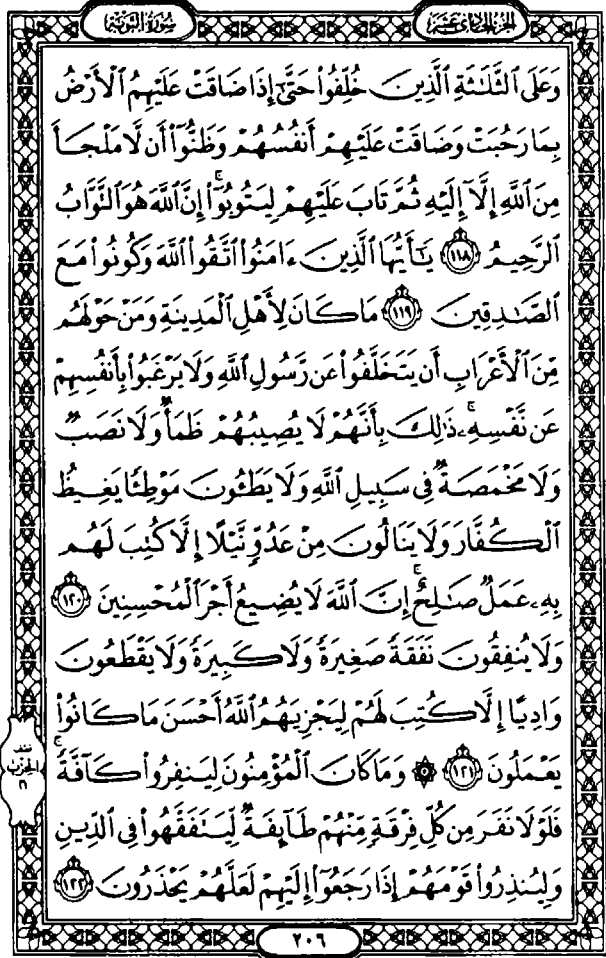 سُورَةُ التَّوْبَةِ
الجُزْءُ الحَادِي عَشَرَ
وَعَلَى ٱلثَّلَٰثَةِ ٱلَّذِينَ خُلِّفُوا۟ حَتَّىٰٓ إِذَا ضَاقَتْ عَلَيْهِمُ ٱلْأَرْضُ
بِمَا رَحُبَتْ وَضَاقَتْ عَلَيْهِمْ أَنفُسُهُمْ وَظَنُّوٓا۟ أَن لَّا مَلْجَأَ
مِنَ ٱللَّهِ إِلَّآ إِلَيْهِ ثُمَّ تَابَ عَلَيْهِمْ لِيَتُوبُوٓا۟ ۚ إِنَّ ٱللَّهَ هُوَ ٱلتَّوَّابُ
ٱلرَّحِيمُ ١١٨ يَٰٓأَيُّهَا ٱلَّذِينَ ءَامَنُوا۟ ٱتَّقُوا۟ ٱللَّهَ وَكُونُوا۟ مَعَ
ٱلصَّٰدِقِينَ ١١٩ مَا كَانَ لِأَهْلِ ٱلْمَدِينَةِ وَمَنْ حَوْلَهُم
مِّنَ ٱلْأَعْرَابِ أَن يَتَخَلَّفُوا۟ عَن رَّسُولِ ٱللَّهِ وَلَا يَرْغَبُوا۟ بِأَنفُسِهِمْ
عَن نَّفْسِهِۦ ۚ ذَٰلِكَ بِأَنَّهُمْ لَا يُصِيبُهُمْ ظَمَأٌ وَلَا نَصَبٌ
وَلَا مَخْمَصَةٌ فِى سَبِيلِ ٱللَّهِ وَلَا يَطَـُٔونَ مَوْطِئًا يَغِيظُ
ٱلْكُفَّارَ وَلَا يَنَالُونَ مِنْ عَدُوٍّ نَّيْلًا إِلَّا كُتِبَ لَهُم
بِهِۦ عَمَلٌ صَٰلِحٌ ۚ إِنَّ ٱللَّهَ لَا يُضِيعُ أَجْرَ ٱلْمُحْسِنِينَ ١٢٠
وَلَا يُنفِقُونَ نَفَقَةً صَغِيرَةً وَلَا كَبِيرَةً وَلَا يَقْطَعُونَ
وَادِيًا إِلَّا كُتِبَ لَهُمْ لِيَجْزِيَهُمُ ٱللَّهُ أَحْسَنَ مَا كَانُوا۟
يَعْمَلُونَ ١٢١ ۞ وَمَا كَانَ ٱلْمُؤْمِنُونَ لِيَنفِرُوا۟ كَآفَّةً ۚ
فَلَوْلَا نَفَرَ مِن كُلِّ فِرْقَةٍ مِّنْهُمْ طَآئِفَةٌ لِّيَتَفَقَّهُوا۟ فِى ٱلدِّينِ
وَلِيُنذِرُوا۟ قَوْمَهُمْ إِذَا رَجَعُوٓا۟ إِلَيْهِمْ لَعَلَّهُمْ يَحْذَرُونَ ١٢٢
الحِزْب
٢٠٦